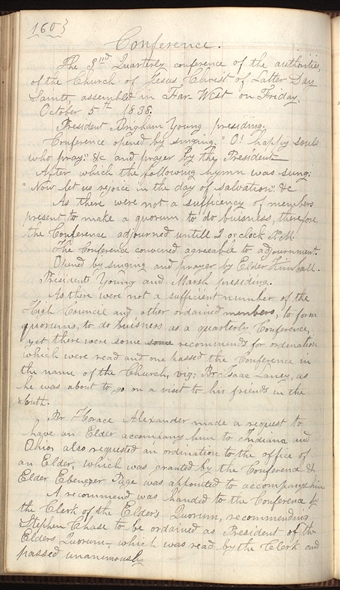 160
Conference.
The 3rd Quarterly conference of the authorities
of the Church of Jesus Christ of Latter Day
Saints, assembled in Far West on Friday,
October 5th 1838.
President Brigham Young presiding.
Conference opened by singing, "O! happy souls
who pray" &c and prayer by the President
After which the following hymn was sung.
"Now let us rejoice in the day of salvation" &c
As there were not a sufficency of members
present to make a quorum to do buisness, therefore
the Conference adjourned untill 2 o'clock P.M.
The Conference convened agreeable to adjournment.
Opened by singing and prayer by Elder Kimball.
Presidents Young and Marsh presiding.
As there were not a sufficient number of the
High Council and other ordained members, to form
quorums, to do buisness as a quarterly Conference,
yet there were some recommends for ordination
which were read and one passed the Conference in
the name of the Church, viz: Br. Isaac Laney, as
he was about to go on a visit to his friends in the
South.
Br Horace Alexander made a request to
have an Elder accompany him to Indiana and
Ohio: also requested an ordination to the office of
an Elder, which was granted by the Conference &
Elder Ebenezer Page was appointed to accompany him
A recommend was handed to the Conference by
the Clerk of the Elder's Quorum, recommending
Stephen Chase to be ordained as President of the
Elders Quorum, which was read by the Clerk and
passed unanimously